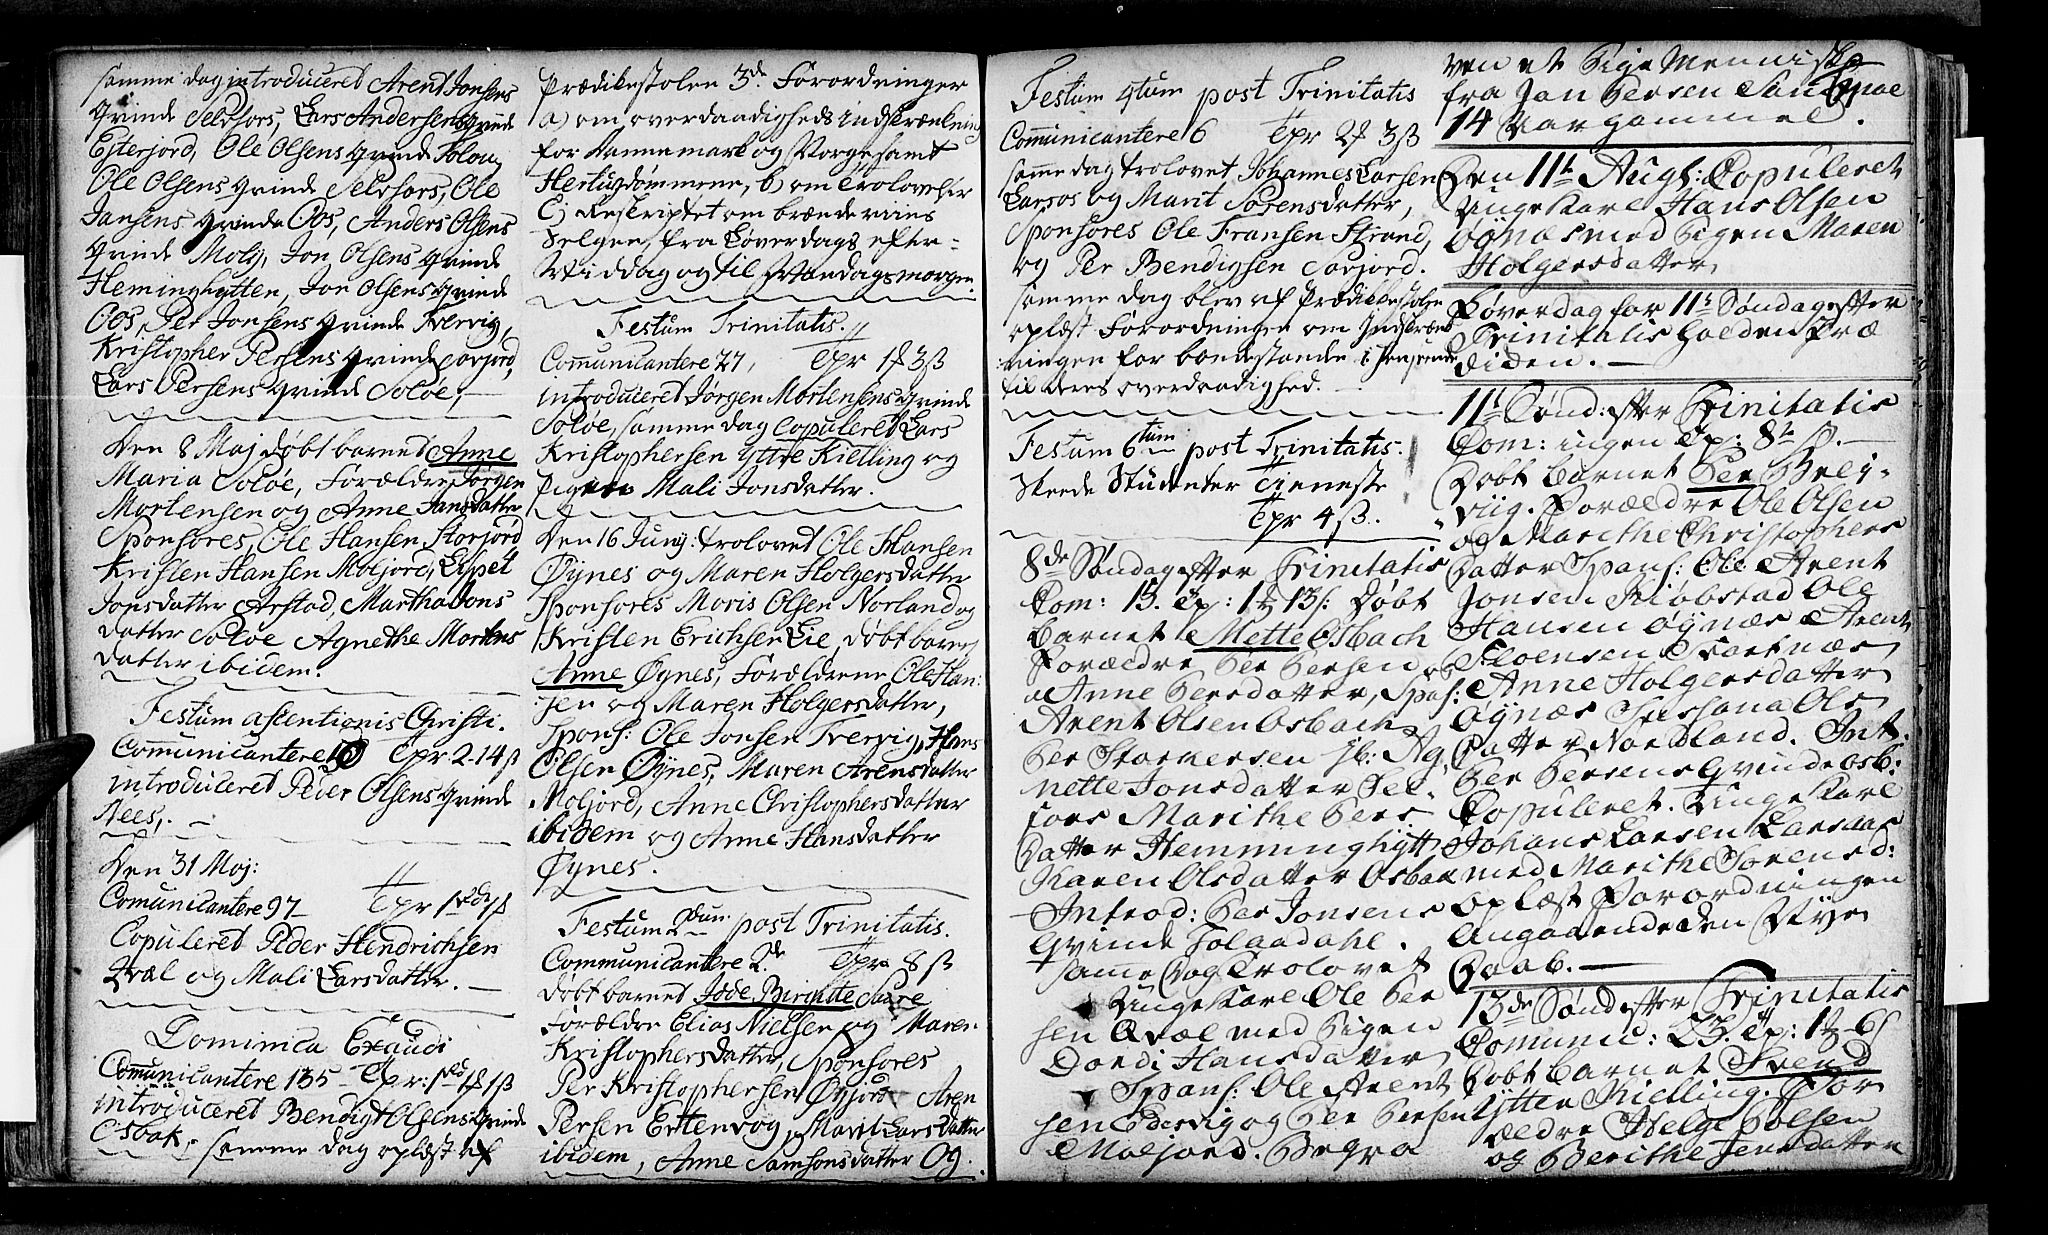 samme dag introduceret Arent Jonsens
qvinde Selsfors, Lars Andersens qvinde
Esterjord, Ole Olsens qvinde
Ole Olsens qvinde Selsfors, Ole
Jansens qvinde Oos, Anders Olsens
qvinde Molg, Jon Olsens qvinde
Heminghytten, Jon Olsens qvinde
Oos, Per Jonsens qvinde Tvervig,
Kristopher Persens qvinde Sorjord,
Lars Persens qvinde Soløe,
Den 8 Maj døbt barnet Anne
Maria Soløe, Forældre Jørgen
Mortensen og Anne Jansdatter
Sponsores, Ole Hansen Storjord
Kristen Hansen Moljord, Lispet
Jonsdatter Arstad, Martha Jons
datter Soløe Agnethe Mortens
datter ibidem.
Festum asentionis Christi.
Communicantere 10 Tpr 2-14 ß
introduceret Peder Olsens qvinde
Nees,. –
Den 31 Maj:
Comunicantere 97 – Tpr
Copuleret Peder Hendrichsen
Qvæl og Mali Larsdatter. –
Dominica Exaudi
Comunicantere 135 – Tpr:
introduceret Bendigt Olsens qvinde
Osbak, samme dag oplæst af
Prædikestolen 3de Forordninger
a) om overdaadigheds indskrænkning
for Dannemark og Norge samt
Hertugdømmene, b) om Trolovelser
C) Reskriptet om brændeviins
Selgen, fra Løverdags efter=
Middag og til Mandags morgen.
Festum Trinitatis.
Communicantere 27, Tpr 1 3ß
introduceret Jørgen Mortensens qvinde
Soløe, samme dag Copuleret Lars
Kristophersen Yttre Kielling og
Pigen Mali Jonsdatter.
Den 16 Junj: trolovet Ole Hansen
Øynes og Maren Holgersdatter
Sponsores Moris Olsen Norland og
Kristen Erichsen Lie, døbt barnet
Anne Øynes, Forældrene Ole Han:
sen og Maren Holgersdatter,
Spons: Ole Jonsen Tvervig, Hans
Olsen Øynes, Maren Arensdatter
Moljord, Anne Christophersdatter
ibidem og Anne Hansdatter
Øynes.
Festum 2dum post Trinitatis.
Communicantere 2de Tpr 8 ß
døbt barnet Jode Birgitte Saure
Forældre Elias Nielsen og Maren
Kristophersdatter, Sponsores
Per Kristophersen Øxjord Aren
Persen Ertenvog, Marit Larsdatter
ibidem, Anne Samsonsdatter Og.
Festum 4tum post Trinitatis
Comunicantere 6 Tpr 2 3ß
samme dag trolovet Johannes Larsen
Larsos og Marit Sørensdatter,
Sponsores Ole Fransen Strand,
og Per Bendigsen Sorjord.
samme dag blev af Prædikestolen
oplæst Forordningen om Indskrænk
ningen for bondestanden i
til deres overdaadighed.
Festum 6tum post Trinitatis.
Skeede Studenter Tieneste
Tpr 4 ß.
8de Søndag efter Trinitatis
Com: 13. Tp: 1 13ß: Døbt
Barnet Mette Osbach
Forældre Per Persen og
Anne Persdatter, Spos:
Arent Olsen Osbach
Per Storkersen ib: Ag,
nette Jonsdatter Sel,
fors Marithe Pers
Datter Hemminghytt
Karen Olsdatter Osbak
Introd: Per Jonsens
Qvinde Tolaadahl.
Same Dag Trolovet
Unge Karl Ole Per
sen Qvæl med Pigen
Dordi Hansdatter
Spons: Ole Arent
sen Edervig og Per Persen
Moljord. Begra
ven et Pige Menniske
fra Jon Persen
14 Aar gammel.
Den 11te Augs: Copuleret
Unge Karl Hans Olsen
Øynæs med Pigen Maren
Holgersdatter
Løverdag for 11te Søndag efter
Trinitatis holden Præ
diden. –
11te Sønd: efter Trinitatis
Com: ingen Tp: 8te ß. –
Døbt Barnet Per Brey-
viig. Forældre Ole Olsen
og Marithe Christophers
Datter Spons: Ole Arent
Jonsen Kiøbstad Ole
Hansen Øynæs Arent
Floensen Svartnæs
Anne Holgersdatter
Øynæs Susanna Ols
Datter Nordland. Int.
Per Persens Qvinde Osb:
Copuleret. Unge Karl
Johans Larsen Larsaas
med Marithe Sørensd:
Oplæst Forordningen
Angaaende den Nye
Daab. –
13de Sønd efter Trinitatis
Comunic: 23. Tp: 1 – 6ß
Døbt Barnet Svend
Ytter Kielling. For
ældre Helge Polsen
og Berithe Jensdatter